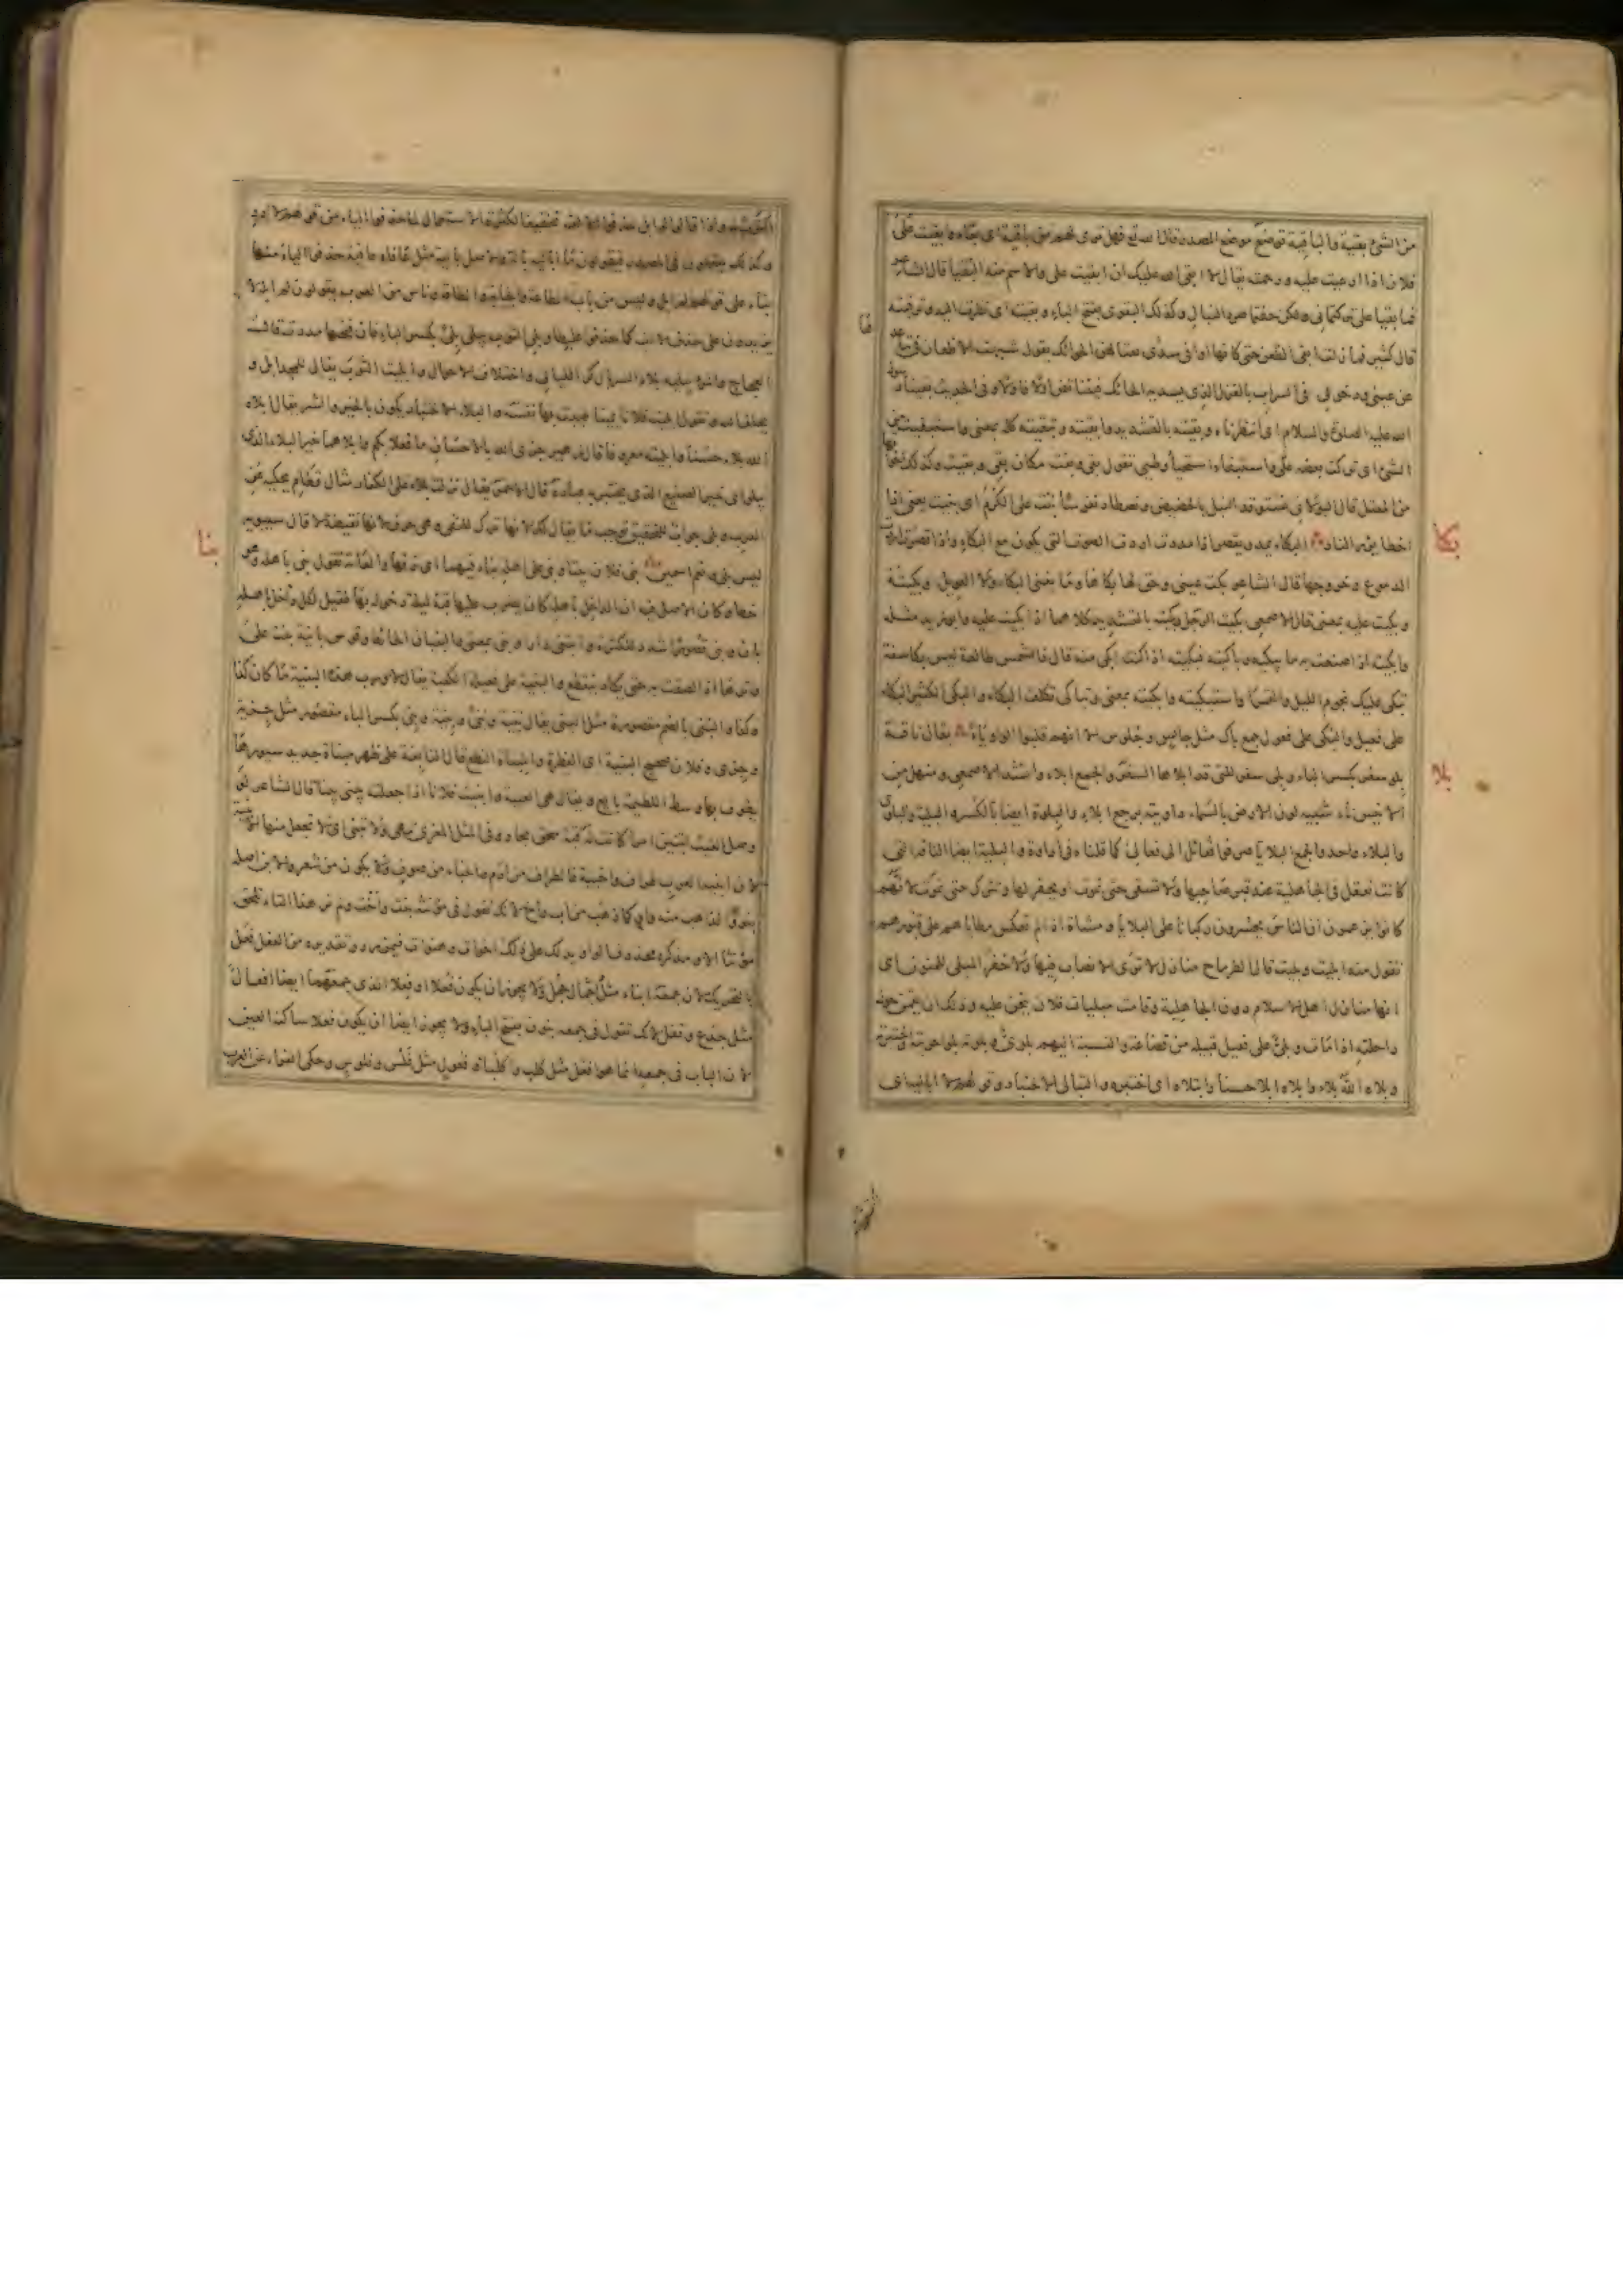 من الشئ بقية والباقية توضع موضع المصدر قال الله تع فهل ترى لهم من باقية اى بقاء وابقيت على
فلان اذا ارعيت عليه ورحمته يقال لا ابقى الله عليك ان ابقيت على والاسم منه البقيا قال الشاعر
فما بقيا على تركتمانى ولكن خفتما صرد النبال وكذلك البقوى بفتح الباء وبقيته اى نظرت اليه وترقبته
قال كثير فما زلت ابقى الظعن حتى كانها اواقى سدى تغتالهن الحوائك يقول شبهت الاظعان فى
عن عينى ودخولها فى السراب بالغزل الذى يسديه الحائك فيتناقص اولا فاولا وفى الحديث بقينا رسول
الله عليه الصلوة والسلام اى انتظرناه وبقيته بالتشديد وابقيته وتبقيته كله بمعنى واستبقيت من
الشئ اى تركت بعضه واستبقاه استحياه وطيئ تقول بقى وبقت مكان بقى وبقيت وكذلك اخواتها
من المعتل قال البولانى نستوقد النبل بالحضيض ونصطاد نفوسا بنت على الكرم اى بنيت يعنى اذا
اخطا يورى النار البكاء يمد ويقصر اذا مددت اردت الصوت الذى يكون مع البكاء واذا قصرت اردت
الدموع وخروجها قال الشاعر بكت عينى وحق لها بكاها وما يغنى البكاء ولا العويل وبكيته
وبكيت عليه بمعنى قال الاصمعى بكيت الرجل وبكيته بالتشديد كلاهما اذا بكيت عليه وابو زيد مثله
وابكيته اذا صنعت به ما يبكيه وباكيته فبكيته اذا كنت ابكى منه قال فالشمس طالعة ليس بكاسفة
تبكى عليك نجوم الليل والقمرا واستبكيته وابكيته بمعنى وتباكى تكلف البكاء والبكى الكثير البكاء
على فعيل والبكى على فعول جمع باك مثل جالس وجلوس الا انهم قلبوا الواو ياء يقال ناقة
بلو سفر بكسر الباء وبلى سفر للتى قد ابلاها السفر والجمع ابلاء وانشد الاصمعى ومنهل من
الانيس ناء شبيه لون الارض بالسماء داويته برجع ابلاء والبلوة ايضا بالكسر والبلية والبلوى
والبلاء واحد والجمع البلايا صرفوا فعائل الى فعالى كما قلناه فى اداوة والبلية ايضا الناقة التى
كانت تعقل فى الجاهلية عند قبر صاحبها ولا تسقى حتى تموت او يحفر لها وتترك حتى تموت لانهم
كانوا يزعمون ان الناس يحشرون ركبانا على البلايا ومشاة اذا لم تعكس مطاياهم على قبورهم
تقول منه ابليت وبليت قال الطرماح منازل لا ترى الانصاب فيها ولا حفر المبلى للمنون اى
انها منازل اهل الاسلام دون الجاهلية وقامت مبليات فلان ينحن عليه وذلك ان يقمن حول
راحلته اذا مات وبلى على فعيل قبيلة من قضاعة والنسبة اليهم بلوى وبلوته بلوا جربته واختبرته
وبلاه الله بلاء وابلاه ابلاء حسنا وابتلاه اى اختبره والتبالى الاختبار وقولهم لا اباليه اى
بكا
بلا
لا اكترث له واذا قالوا لم ابل حذفوا الالف تخفيفا لكثرة الاستعمال كما حذفوا الياء من قولهم لا ادر
وكذلك يفعلون فى المصدر فيقولون ما اباليه بالة والاصل بالية مثل عافاه عافية حذفوا الياء منها
بناء على قولهم لم ابل وليس من باب الطاعة والجابة والطاقة وناس من العرب يقولون لم ابله لا
يزيدون على حذف الالف كما حذفوا علبطا وبلى الثوب يبلى بلى بكسر الباء فان فتحتها مددت قال
العجاج والمرء يبليه بلاء السربال كر الليالى واختلاف الاحوال وابليت الثوب يقال للمجد ابل و
يخلف الله وتقول ابليت فلانا يمينا طيبت بها نفسه والبلاء الاختبار يكون بالخير والشر يقال ابلاه
الله بلاء حسنا وابليته معروفا قال زهير جزى الله بالاحسان ما فعلا بكم وابلاهما خير البلاء الذى
يبلو اى خير الصنيع الذى يختبر به عباده قال الاحمر يقال نزلت بلاء على الكفار مثال قطام يحكيه عن
العرب وبلى جواب للتحقيق توجب ما يقال لك لانها ترك للنفى وهى حرف لانها نقيضة لا قال سيبويه
ليس بلى ونعم اسمين بنى فلان بيتا وبنى على اهله بناء فيهما اى زفها والعامة تقول بنى باهله وهو
خطا وكان الاصل فيه ان الداخل باهله كان يضرب عليها قبة ليلة دخوله بها فقيل لكل داخل باهله
بان وبنى قصورا شدد للكثرة وابتنى دارا وبنى بمعنى والبنيان الحائط وقوس بانية بنت على
وترها اذا لصقت به حتى يكاد ينقطع والبنية على فعيلة الكعبة يقال لا ورب هذه البنية ما كان كذا
وكذا والبنى بالضم مقصور مثل البنى يقال بنية وبنى وبنية وبنى بكسر الباء مقصور مثل جزية
وجزى وفلان صحيح البنية اى الفطرة والمبناة النطع قال النابغة على ظهر مبناة جديد سيورها
يطوف بها وسط اللطيمة بايع ويقال هى العيبة وابنيت فلانا اذا جعلته يبنى بيتا قال الشاعر لو
وصل الغيث ابنين امرا كانت له قبة سحق بجاد وفى المثل المعزى تبهى ولا تبنى اى لا تجعل منها ابنية
لان ابنية العرب طراف واخبية فالطراف من ادم والخباء من صوف ولا يكون من شعر والابن اصله
بنو الذاهب منه واو كما ذهب من اب واخ لانك تقول فى مؤنثه بنت واخت ولم نر هذه التاء تلحق
مؤنثا الا ومذكره محذوف الواو يدلك على ذلك اخوات وهنوات فيمن رد وتقديره من الفعل فعل
بالتحريك لان جمعه ابناء مثل اجمال وجمل ولا يجوز ان يكون فعلا او فعلا الذى جمعهما ايضا افعال
مثل جذع وقفل لانك تقول فى جمعه بنون بفتح الباء ولا يجوز ايضا ان يكون فعلا ساكنة العين
لان الباب فى جمعه انما هو افعل مثل كلب واكلب او فعول مثل فلس وفلوس وحكى الفراء عن العرب
بنا